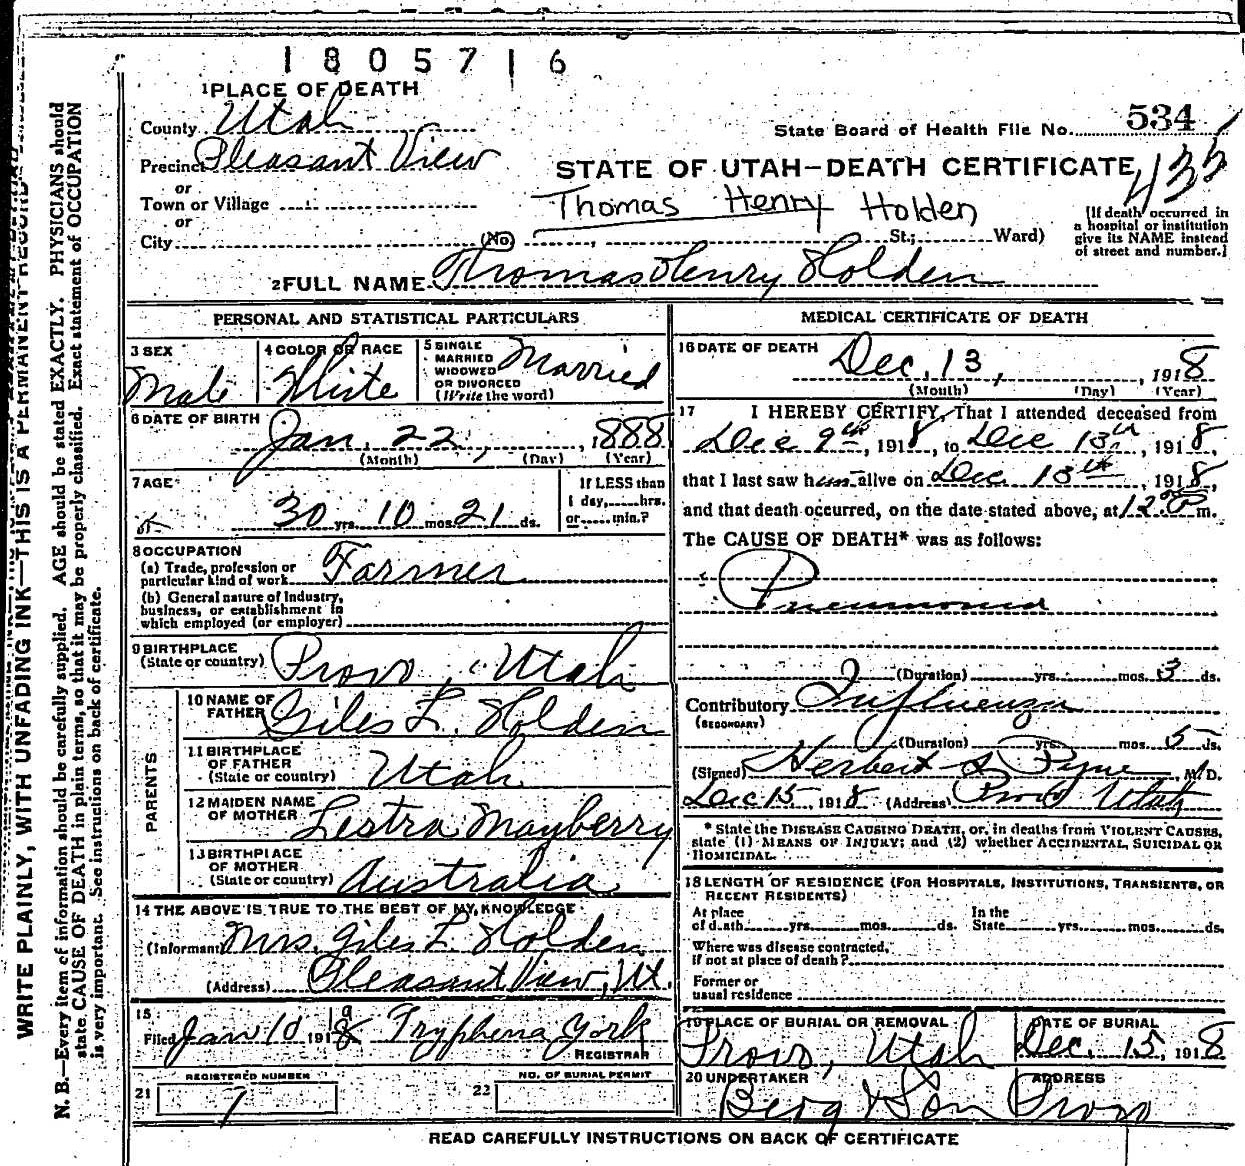 1 8 0 5 7 1 6
1 PLACE OF DEATH
County Utah
State Board of Health File No. 534
Precinct Pleasant View
STATE OF UTAH—DEATH CERTIFICATE
435
or
Town or Village
Thomas Henry Holden
or
City (No. , St.; Ward)
(If death occurred in a hospital or institution give its NAME instead of street and number.)
2 FULL NAME Thomas Henry Holden
PERSONAL AND STATISTICAL PARTICULARS
3 SEX
Male
4 COLOR OR RACE
White
5 SINGLE
MARRIED
WIDOWED
OR DIVORCED
(Write the word)
Married
6 DATE OF BIRTH
Jan. 22, 1888
(Month) (Day) (Year)
7 AGE
30 yrs. 10 mos. 21 ds.
If LESS than
1 day, hrs.
or min.?
8 OCCUPATION
(a) Trade, profession or
particular kind of work Farmer
(b) General nature of Industry,
business, or establishment in
which employed (or employer)
9 BIRTHPLACE
(State or country) Provo, Utah
PARENTS
10 NAME OF
FATHER Giles L. Holden
11 BIRTHPLACE
OF FATHER
(State or country) Utah
12 MAIDEN NAME
OF MOTHER Lestra Mayberry
13 BIRTHPLACE
OF MOTHER
(State or country) Australia
14 THE ABOVE IS TRUE TO THE BEST OF MY KNOWLEDGE
(Informant) Mrs. Giles L. Holden
(Address) Pleasant View, Ut.
15
Filed Jan 10 1918 9 Tryphena York
REGISTRAR
REGISTERED NUMBER
21 1
NO. OF BURIAL PERMIT
22
MEDICAL CERTIFICATE OF DEATH
16 DATE OF DEATH
Dec. 13, , 1918
(Month) (Day) (Year)
17 I HEREBY CERTIFY, That I attended deceased from
Dec 9th, 1918, to Dec 13th, 1918,
that I last saw him alive on Dec. 13th, 1918,
and that death occurred, on the date stated above, at m.
The CAUSE OF DEATH* was as follows:
Pneumonia
(Duration) yrs. mos. 3 ds.
Contributory Influenza
(SECONDARY)
(Duration) yrs. mos. 5 ds.
(Signed) Herbert S Pyne M. D.
Dec 15, 1918 (Address) Provo Utah
* State the DISEASE CAUSING DEATH, or, in deaths from VIOLENT CAUSES,
state (1) MEANS OF INJURY; and (2) whether ACCIDENTAL, SUICIDAL OR
HOMICIDAL.
18 LENGTH OF RESIDENCE (FOR HOSPITALS, INSTITUTIONS, TRANSIENTS, OR
RECENT RESIDENTS)
At place In the
of death yrs. mos. ds. State yrs. mos. ds.
Where was disease contracted,
if not at place of death?
Former or
usual residence
19 PLACE OF BURIAL OR REMOVAL
Provo, Utah
DATE OF BURIAL
Dec. 15, 1918
20 UNDERTAKER
Berg & Son
ADDRESS
Provo
READ CAREFULLY INSTRUCTIONS ON BACK OF CERTIFICATE
WRITE PLAINLY, WITH UNFADING INK—THIS IS A PERMANENT RECORD
N. B.—Every item of information should be carefully supplied. AGE should be stated EXACTLY. PHYSICIANS should
state CAUSE OF DEATH in plain terms, so that it may be properly classified. Exact statement of OCCUPATION
is very important. See instructions on back of certificate.